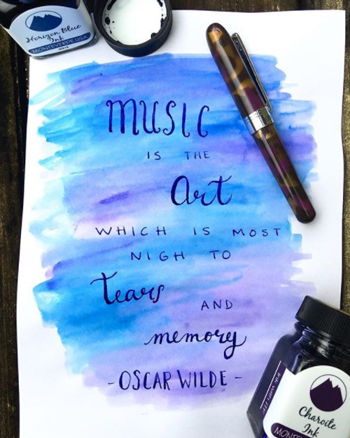 Horizon Blue
Ink
MONTEVERDE USA
MUSIC
IS THE
Art
WHICH IS MOST
NIGH TO
Tears
AND
memory
-OSCAR WILDE-
Charoite
Ink